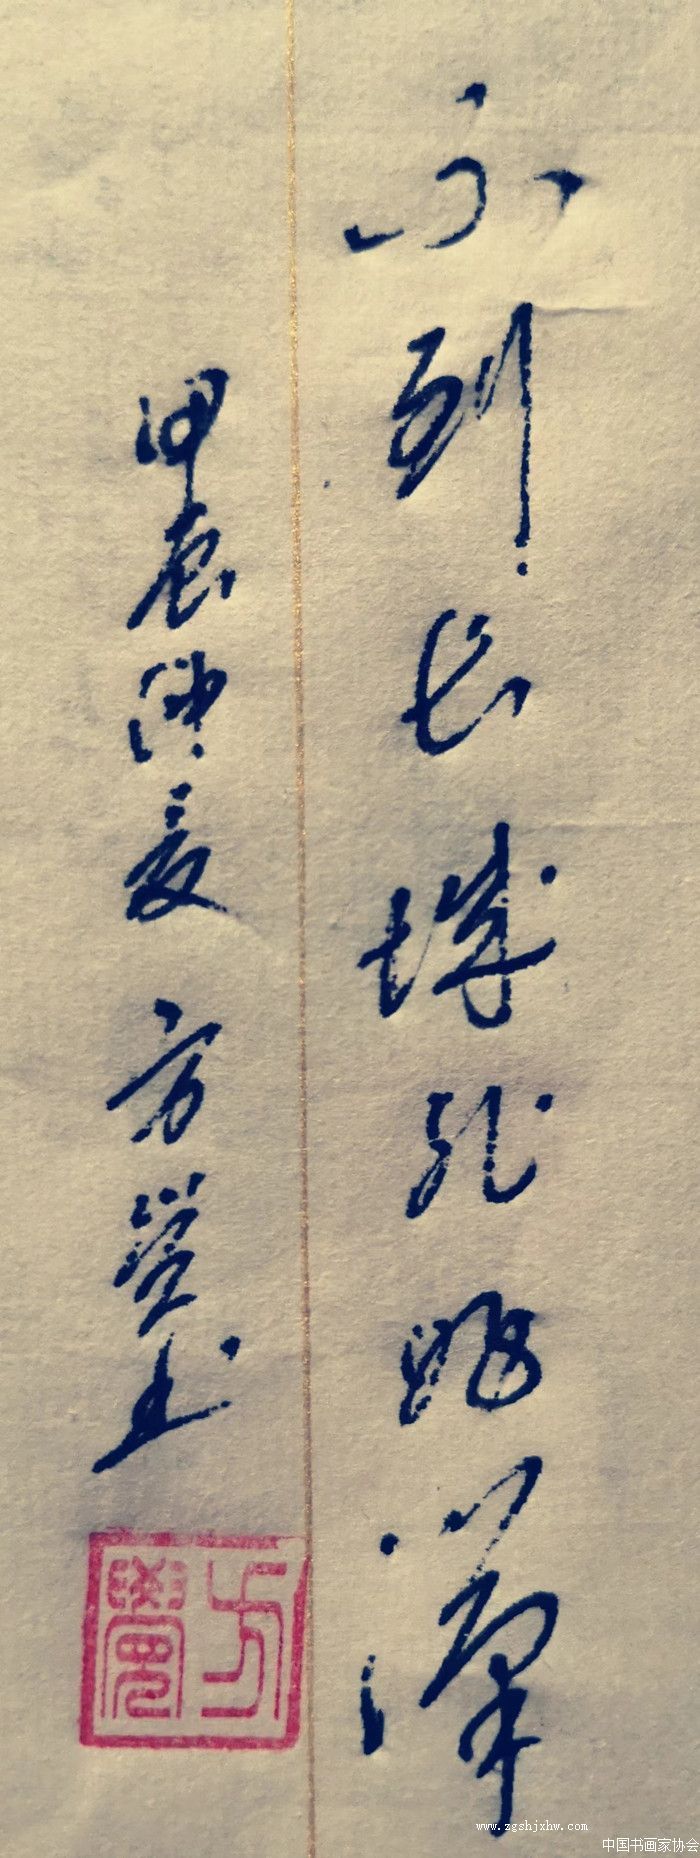 不到长城非好汉
甲辰仲夏 方觉书
方觉
www.zgshjxhw.com
中国书画家协会